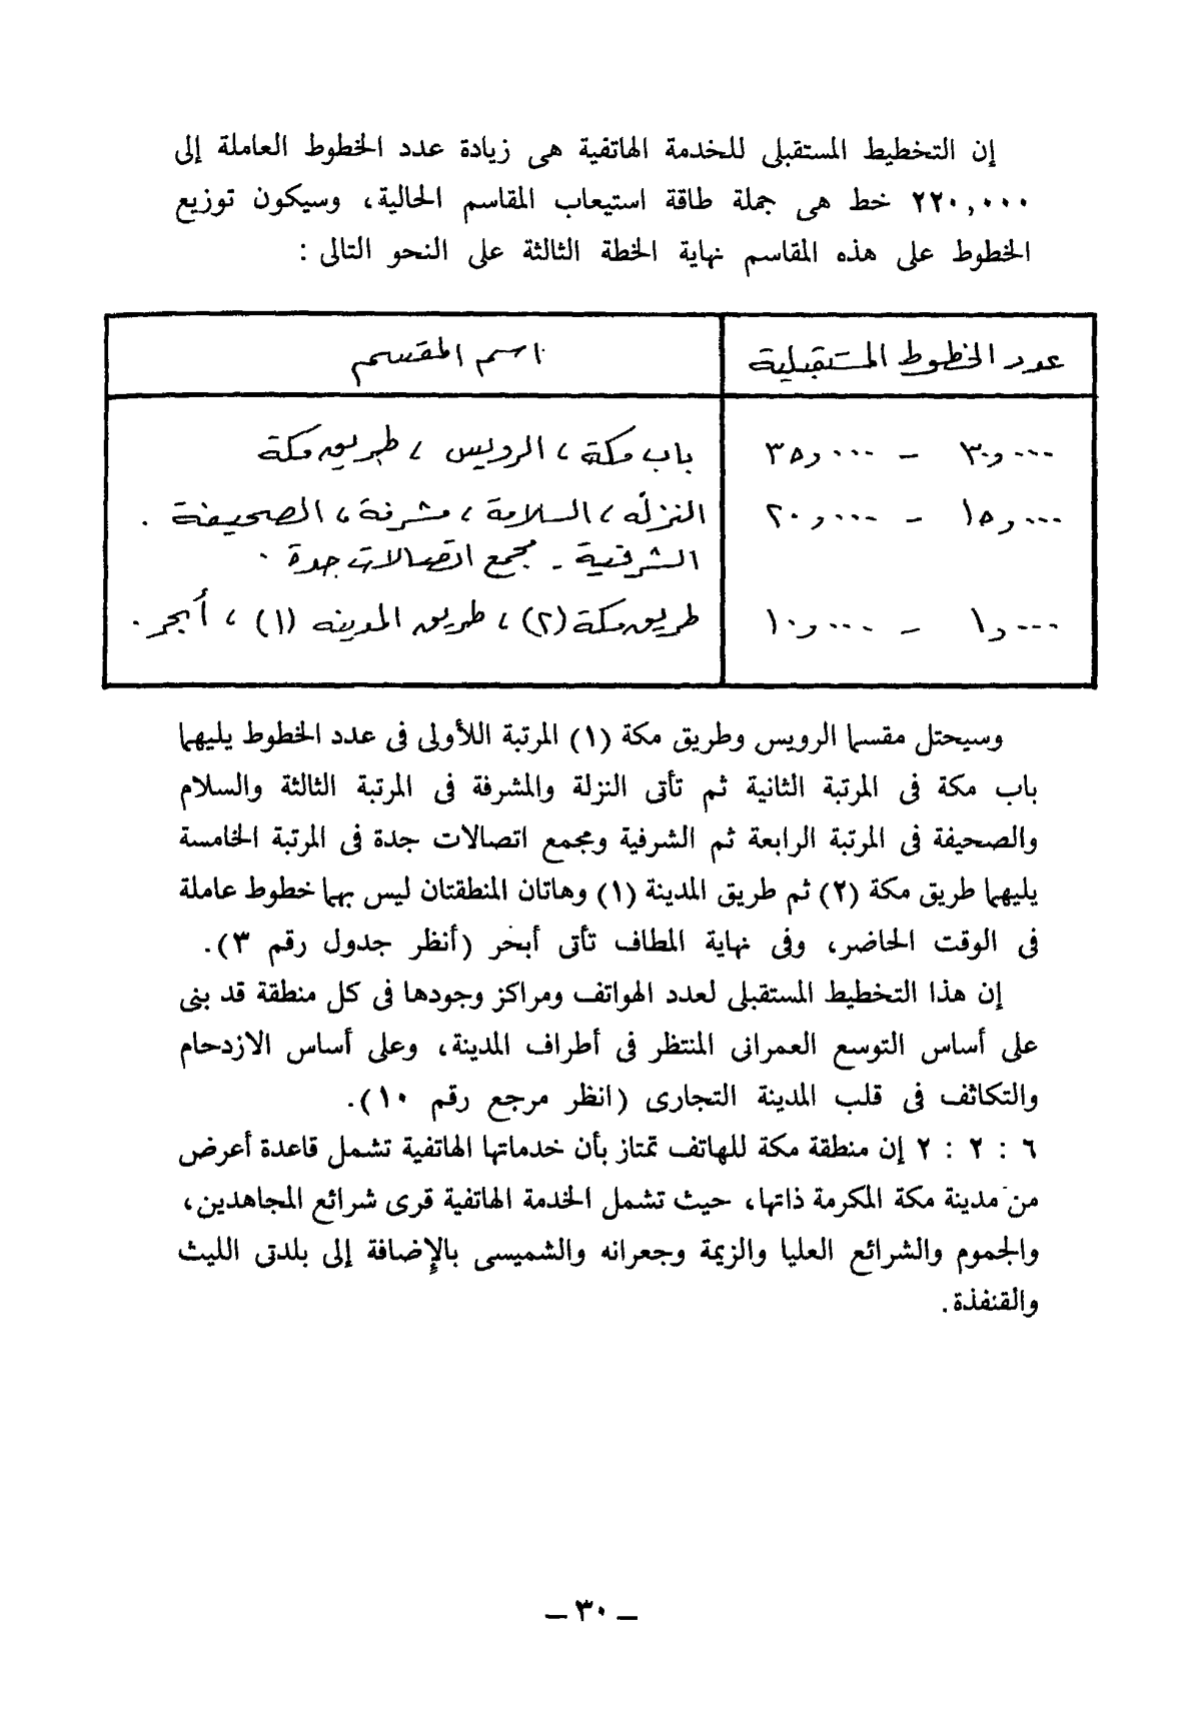 إن التخطيط المستقبلى للخدمة الهاتفية هى زيادة عدد الخطوط العاملة إلى
٢٢٠,٠٠٠ خط هى جملة طاقة استيعاب المقاسم الحالية، وسيكون توزيع
الخطوط على هذه المقاسم نهاية الخطة الثالثة على النحو التالى :
عدد الخطوط المستقبلية اسم المقسم
٣٠,٠٠٠ – ٣٥,٠٠٠ باب مكة، الرويس، طريق مكة
١٥,٠٠٠ – ٢٠,٠٠٠ النزله، السلامة، مشرفة، الصحيفة .
الشرفية - مجمع اتصالات جدة .
١,٠٠٠ – ١٠,٠٠٠ طريق مكة (٢)، طريق المدينه (١)، أبحر.
وسيحتل مقسما الرويس وطريق مكة (١) المرتبة اللأولى فى عدد الخطوط يليهما
باب مكة فى المرتبة الثانية ثم تأتى النزلة والمشرفة فى المرتبة الثالثة والسلام
والصحيفة فى المرتبة الرابعة ثم الشرفية ومجمع اتصالات جدة فى المرتبة الخامسة
يليهما طريق مكة (٢) ثم طريق المدينة (١) وهاتان المنطقتان ليس بهما خطوط عاملة
فى الوقت الحاضر، وفى نهاية المطاف تأتى أبخر (أنظر جدول رقم ٣).
إن هذا التخطيط المستقبلى لعدد الهواتف ومراكز وجودها فى كل منطقة قد بنى
على أساس التوسع العمرانى المنتظر فى أطراف المدينة، وعلى أساس الازدحام
والتكاثف فى قلب المدينة التجارى (انظر مرجع رقم ١٠).
٦ : ٢ : ٢ إن منطقة مكة للهاتف تمتاز بأن خدماتها الهاتفية تشمل قاعدة أعرض
من مدينة مكة المكرمة ذاتها، حيث تشمل الخدمة الهاتفية قرى شرائع المجاهدين،
والجموم والشرائع العليا والزيمة وجعرانه والشميسى بالإضافة إلى بلدتى الليث
والقنفذة.
– ٣٠ –